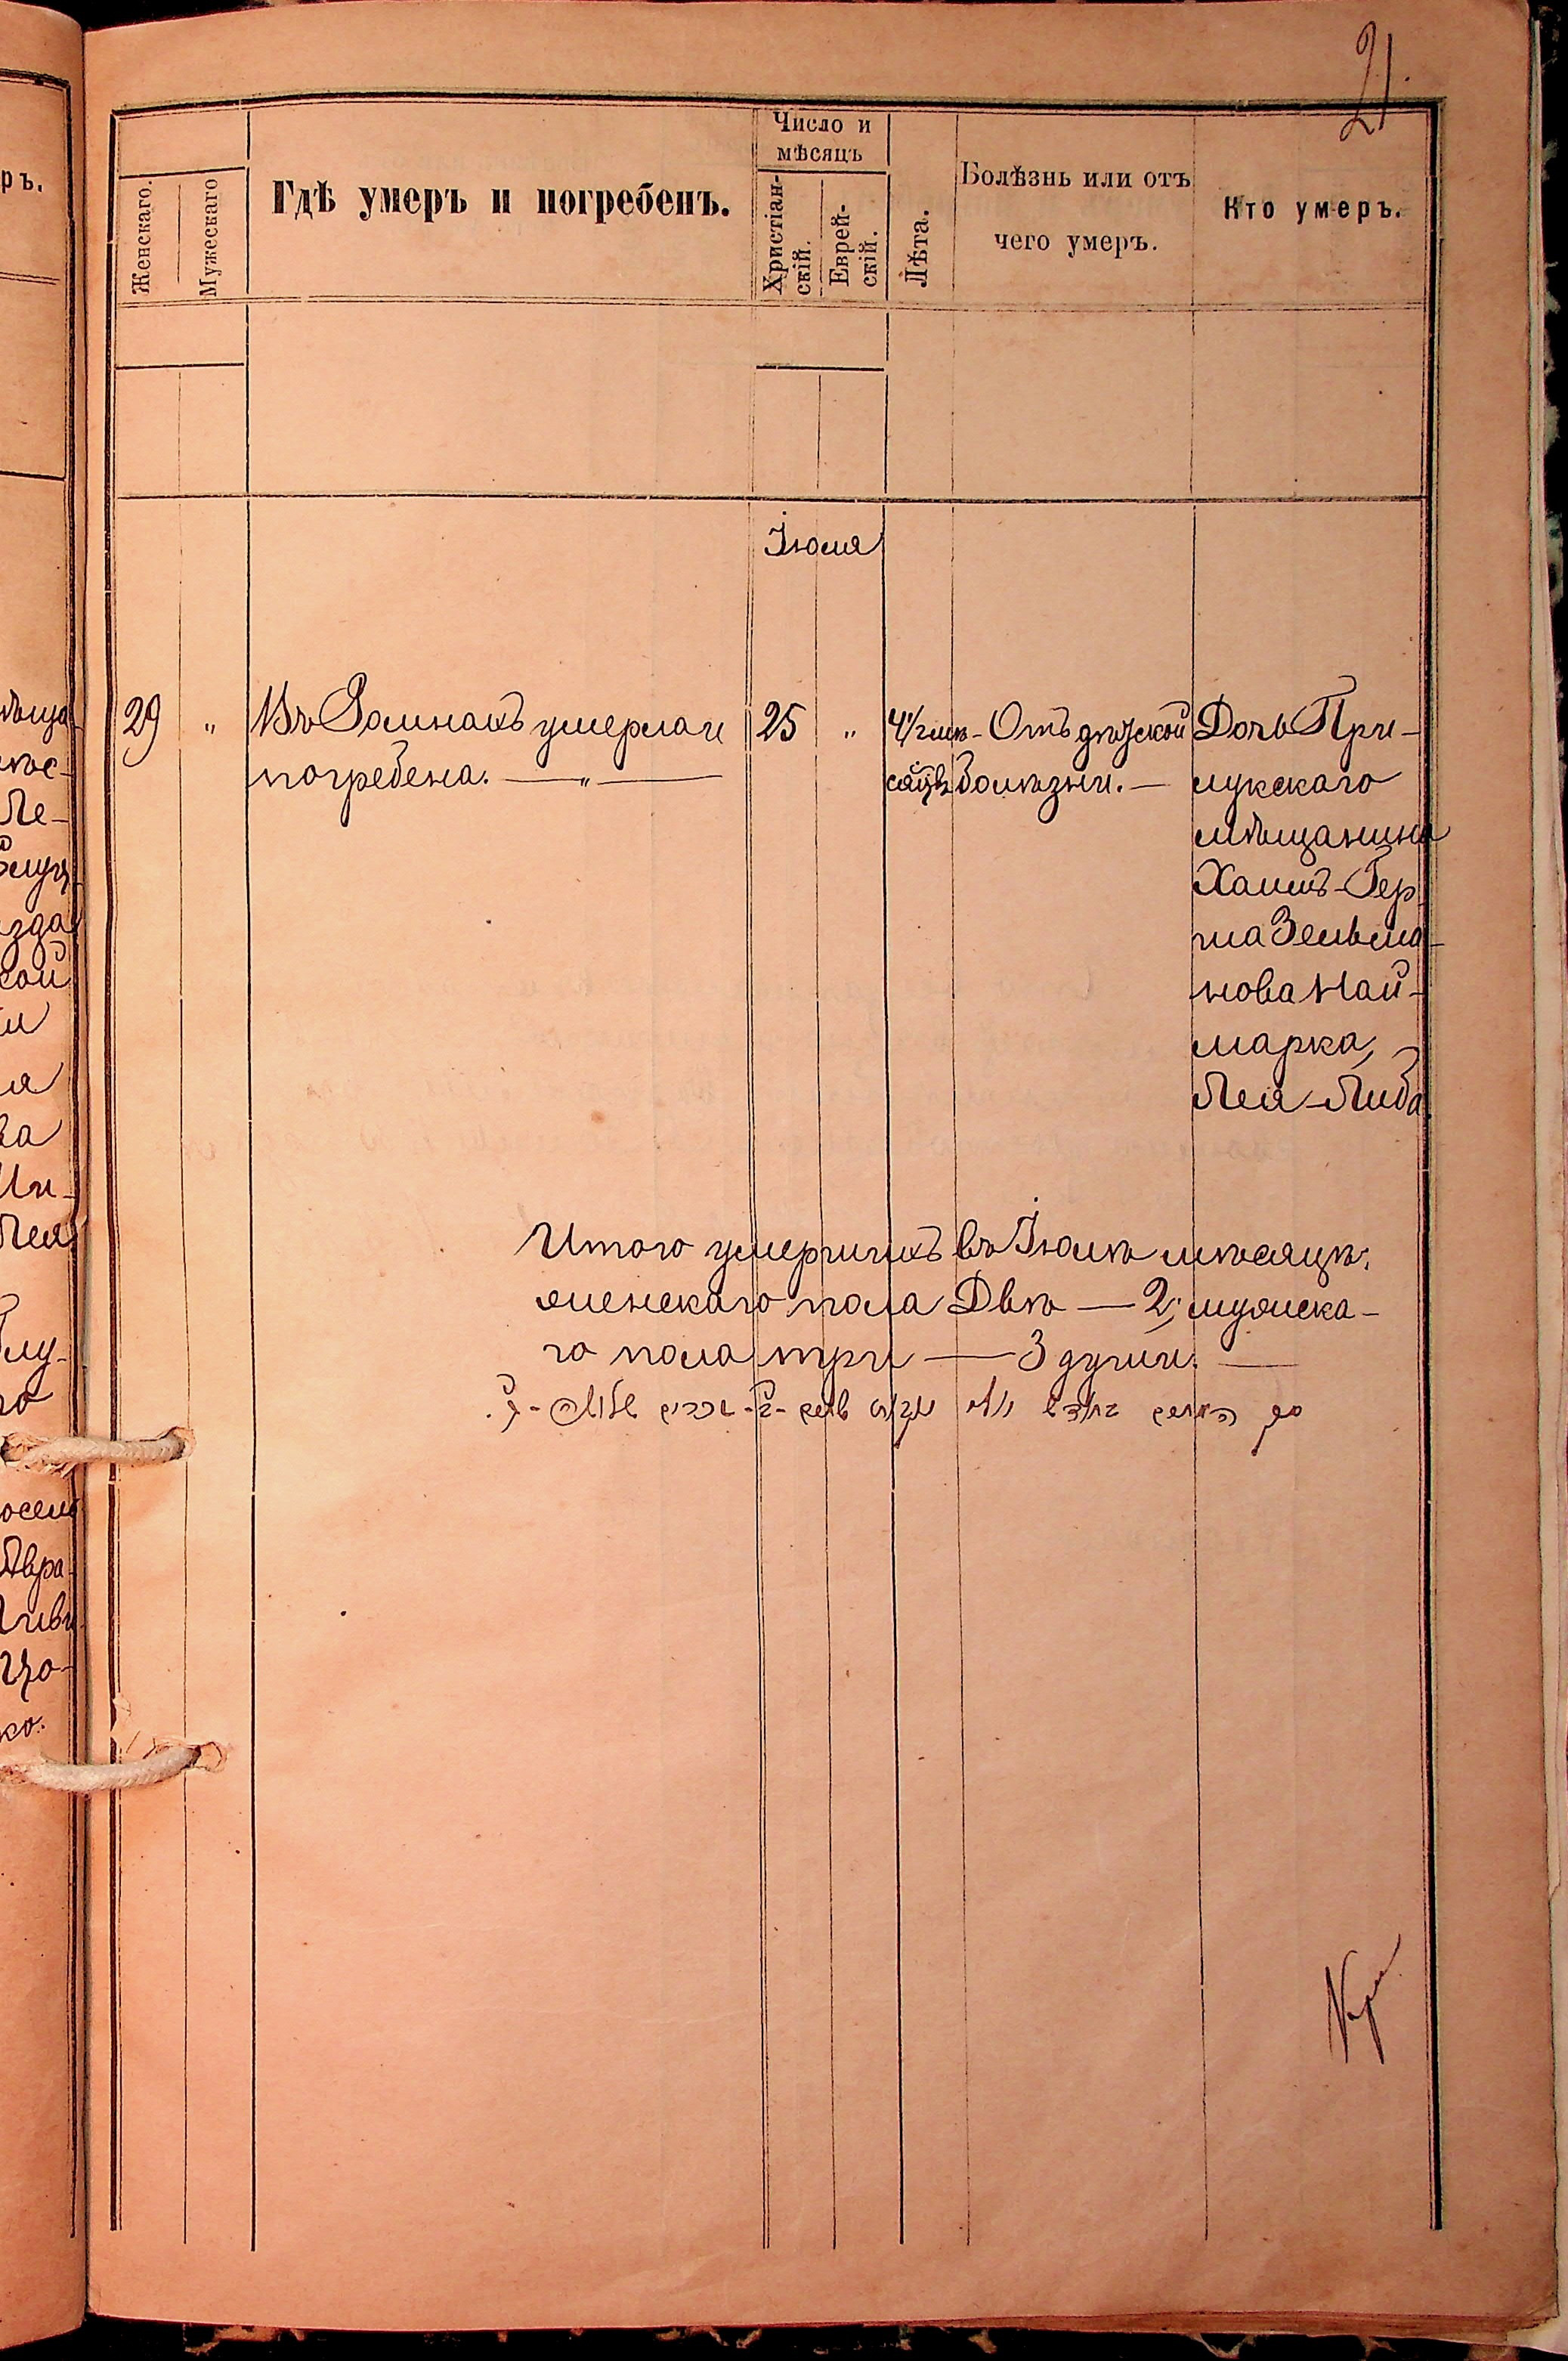 21.
Женскаго.
Мужескаго
Гдѣ умеръ и погребенъ.
Число и
мѣсяцъ
Христіан-
скій.
Еврей-
скій.
Лѣта.
Болѣзнь или отъ
чего умеръ.
Кто умеръ.
Іюля
29 „ Въ Ромнахъ умерла и
погребена. — „ —
25 „
4½ мѣ-
сяцѣ
Отъ дѣтской
болѣзни. —
Дочь При-
лукскаго
мѣщанина
Хаимъ-Гер
ша Зельма-
нова Най-
марка,
Лея-Либа
Итого умершихъ въ Іюлѣ мѣсяцѣ:
женскаго пола Двѣ — 2; мужска-
го пола три — 3 души. —
ръ.